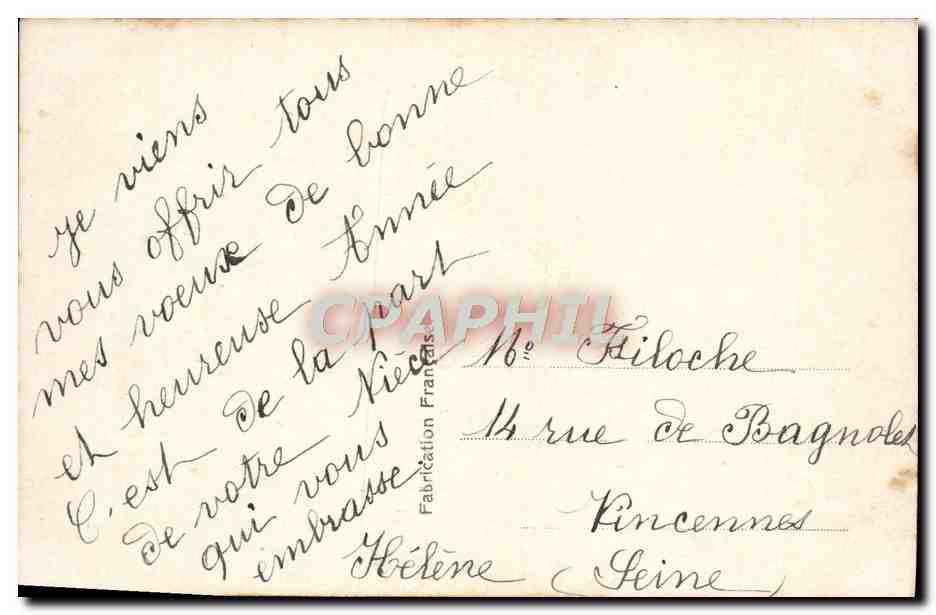 Je viens
vous offrir tous
mes voeux de bonne
et heureuse Année
C'est de la part
de votre Nièce
qui vous
embrasse.
Hélène
Fabrication Française
CPAPHIL
Filoche
14 rue de Bagnolet
Vincennes
(Seine)